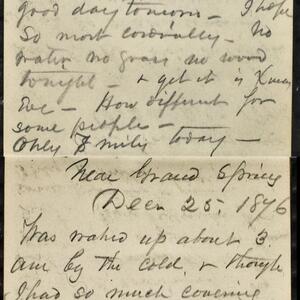 good day tomorrow – I hope
so most cordially – No
water no grass no wood
tonight – & yet it is Xmas
Eve – How different for
some people –
Only 8 miles today –
Near Grand Spring
Decr 25. 1876
Was waked up about 3.
am by the cold, & though
I had so much covering